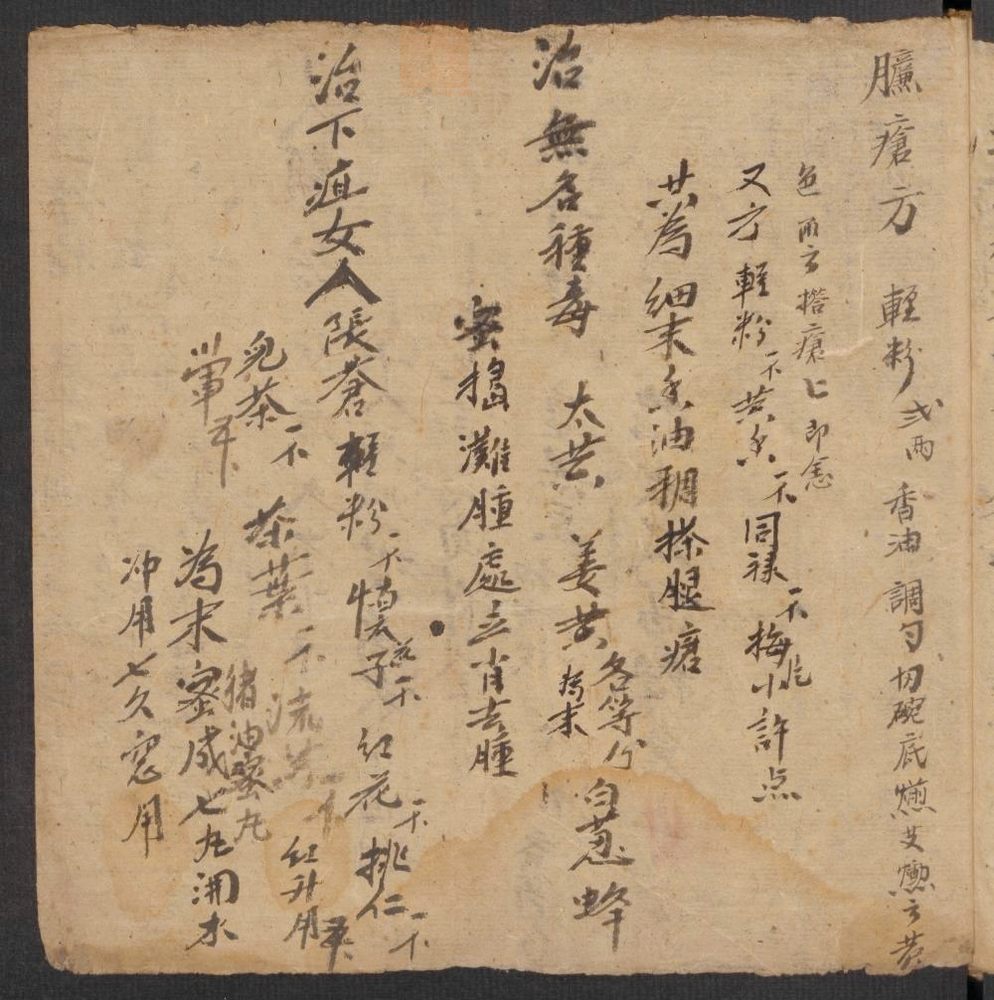 臁瘡方 輕粉弍兩 香油調勻切碗底燻艾燻之黃
色 雨方搽瘡上即愈
又方 輕粉一不黃香一不同祿一不梅片小許点
共為細末香油稠搽腿瘡
治無名種毒 太黄 姜黄各等分為末 白蔥蜂
蜜搗灘腫處立肖去腫
治下疳女人張蒼輕粉一不慎子一不 紅花一不 挑仁一不
兒茶一不 茶葉一不 流黄 紅升用
葷 為末蜜成七丸渊水
猪油蜜丸
冲用七久 用